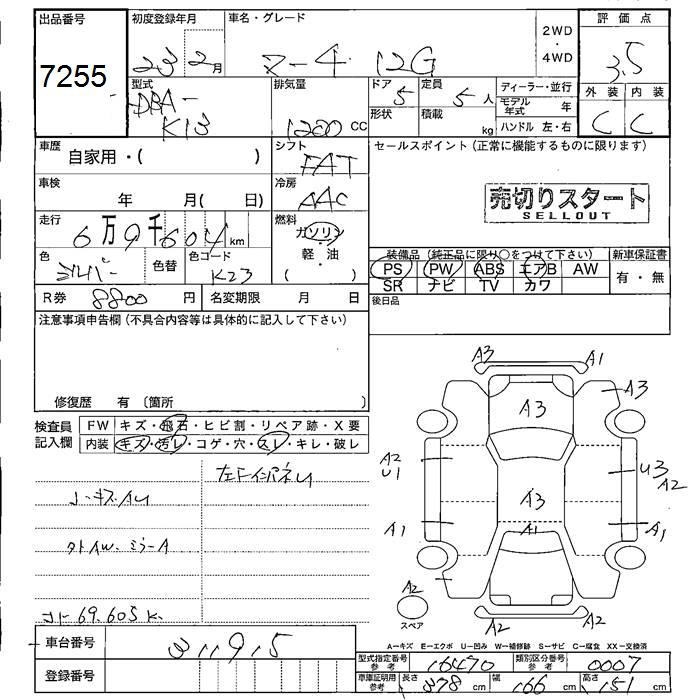 出品番号 初度登録年月 車名・グレード 2WD・4WD 評価点
7255 23 2月 マーチ 12G 3.5
型式 排気量 ドア 定員 ディーラー・並行 外装 内装
DBA-K13 1200 CC 5 5人 モデル年式 年 C C
形状 積載 kg ハンドル 左・右
車歴 自家用・( ) シフト FAT セールスポイント(正常に機能するものに限ります)
車検 年 月( 日) 冷房 AAC
売切りスタート
SELLOUT
走行 6万9千604km 燃料 ガソリン・軽・油 ( )
色 シルバー 色替 色コード K23
装備品(純正品に限り○をつけて下さい) 新車保証書
PS PW ABS エアB AW 有・無
SR ナビ TV カワ
R券 8800円 名変期限 月 日 後日品
注意事項申告欄(不具合内容等は具体的に記入して下さい)
修復歴 有 〔箇所 〕
検査員記入欄 FW キズ・飛石・ヒビ割・リペア跡・X要
内装 キズ・汚レ・コゲ・穴・スレ・キレ・破レ
A3 A1
A3 A3
A2 U1 U3 A2
A3
A1 A1 A1
A2
スペア
A2 A2
コー69.605K.
A-キズ E-エクボ U-凹み W-補修跡 S-サビ C-腐食 XX-交換済
車台番号 311915
登録番号
型式指定番号 参考 16470 類別区分番号 参考 0007
車庫証明用 参考 長さ 378cm 幅 166cm 高さ 151cm